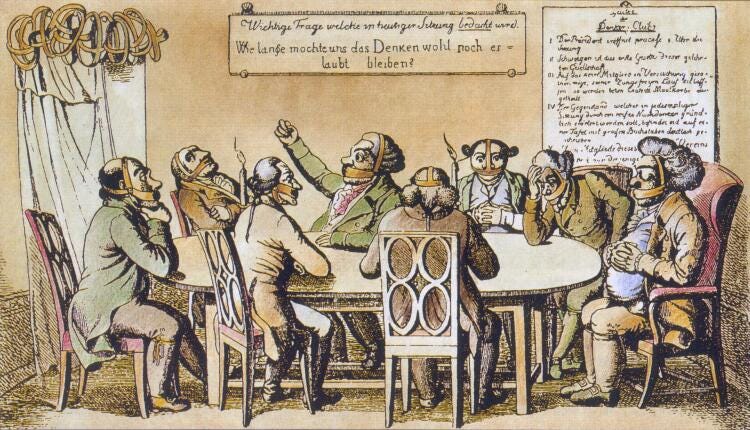 Wichtige Frage welche in heutiger Sitzung bedacht wird.
Wie lange möchte uns das Denken wohl noch er=
laubt bleiben?
der
Denker-Club
I Der Präsident eröffnet precise 8 Uhr die
Sitzung
II Schweigen ist das erste Gesetz dieser gelehr-
ten Gesellschaft
III Auf das kein Mitglied in Versuchung
seiner Zunge freyen Lauf
so werden beim Maulkörbe aus-
getheilt
IV Der Gegenstand welcher in jedesmaliger
Sitzung durch ein reifes Nachdenken gründ-
lich erörtert werden soll, befindet sich auf ei-
ner Tafel mit großen Buchstaben deutlich ge-
schrieben
Mitglieder dieses Vereins
derjenige